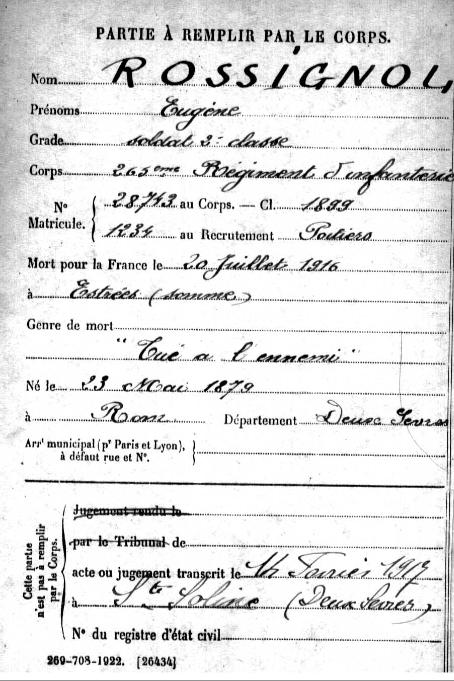 PARTIE À REMPLIR PAR LE CORPS.
Nom ROSSIGNOL
Prénoms Eugène
Grade soldat 2e classe
Corps 265ème Régiment d'infanterie
N° Matricule. 28,743 au Corps. — Cl. 1899
1234 au Recrutement Poitiers
Mort pour la France le 20 Juillet 1916
à Estrées (somme)
Genre de mort
"Tué a l'ennemi"
Né le 23 Mai 1879
à Rom Département Deux Sevres
Arrt municipal (pr Paris et Lyon),
à défaut rue et N°.
Cette partie n'est pas à remplir par le Corps.
Jugement rendu le
par le Tribunal de
acte ou jugement transcrit le 14 Fevrier 1917
à Ste Soline (Deux Sevres)
N° du registre d'état civil
269-708-1922. [26434]